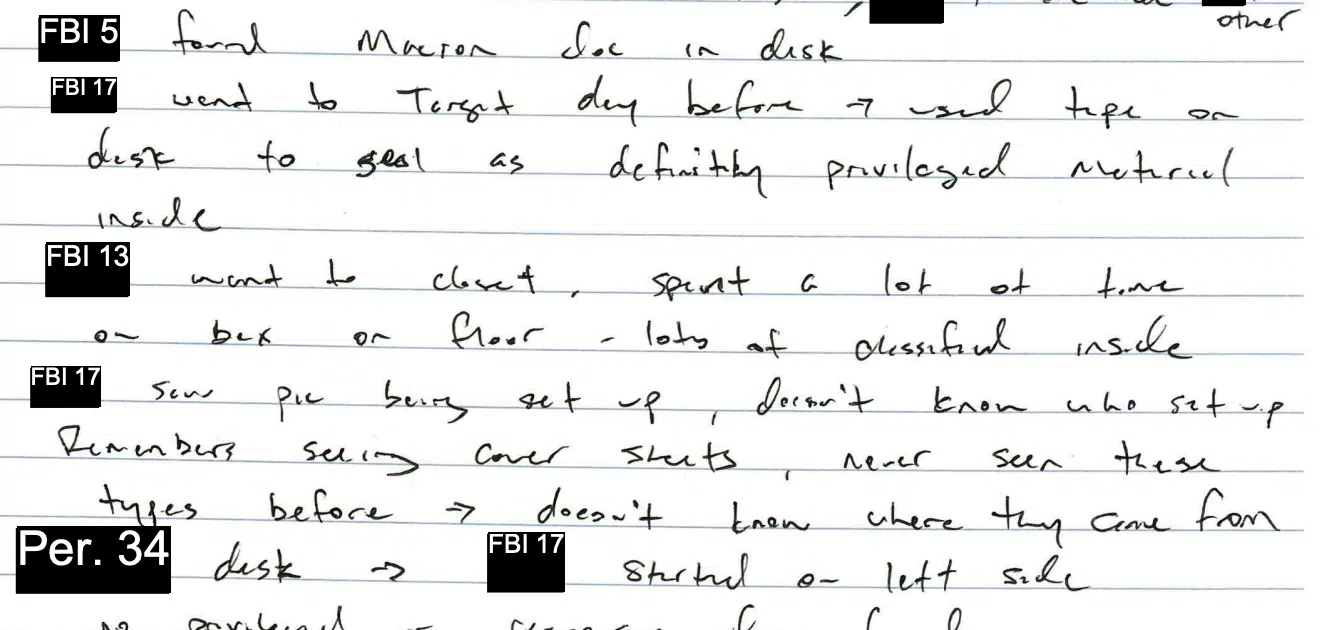 other
FBI 5 found Macron doc in disk
FBI 17 went to Target day before → used tape on
desk to seal as definitly privileged material
inside
FBI 13 went to closet, spent a lot of time
on box on floor - lots of classified inside
FBI 17 saw pic being set up, doesn't know who set up
Remembers seeing cover sheets, never seen these
types before → doesn't know where they came from
Per. 34 desk → FBI 17 started on left side
no privileged